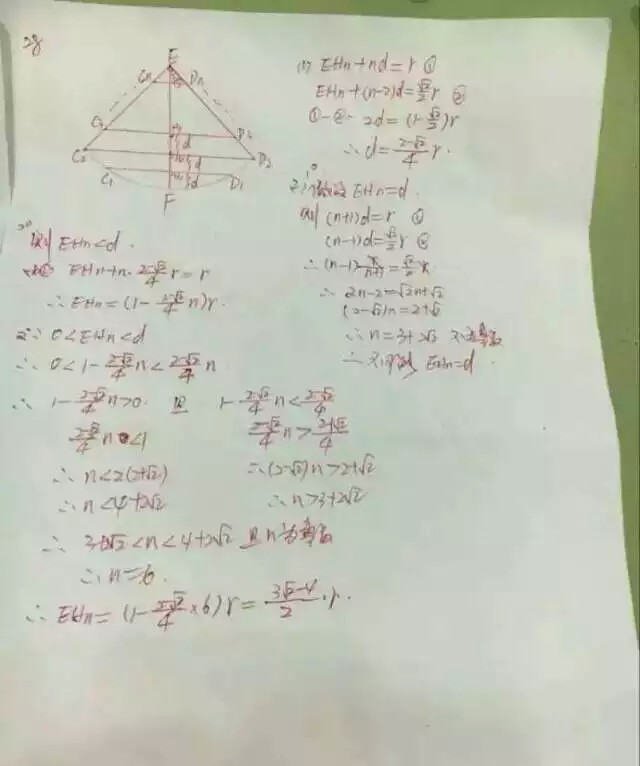 28
E
Cn Dn
d
D2
d
d
C1 D1
F
(1) EHn+nd=r ①
EHn+(n-2)d=√2/2 r ②
①-②- 2d=(1-√2/2)r
∴ d=(2-√2)/4 r.
EHn=d.
则 (n+1)d=r ①
(n-1)d=√2/2 r ②
∴ (n-1)·r/(n+1)=√2/2 r
∴ 2n-2=√2n+√2
(2-√2)n=2+√2
∴ n=3+2√2
∴ EHn=d
则 EHn<d.
EHn+n·(2-√2)/4 r=r
∴ EHn=(1-(2-√2)/4 n)r.
∵ 0<EHn<d
∴ 0<1-(2-√2)/4 n<(2-√2)/4 n
∴ 1-(2-√2)/4 n>0 且 1-(2-√2)/4 n<(2-√2)/4
(2-√2)/4 n<1 (2-√2)/4 n>(2+√2)/4
∴ n<2(2+√2) ∴(2-√2)n>2+√2
∴ n<4+2√2 ∴ n>3+2√2
∴ 3+2√2<n<4+2√2 且n为
∴ n=6.
∴ EHn=(1-(2-√2)/4×6)r=(3√2-4)/2·r.